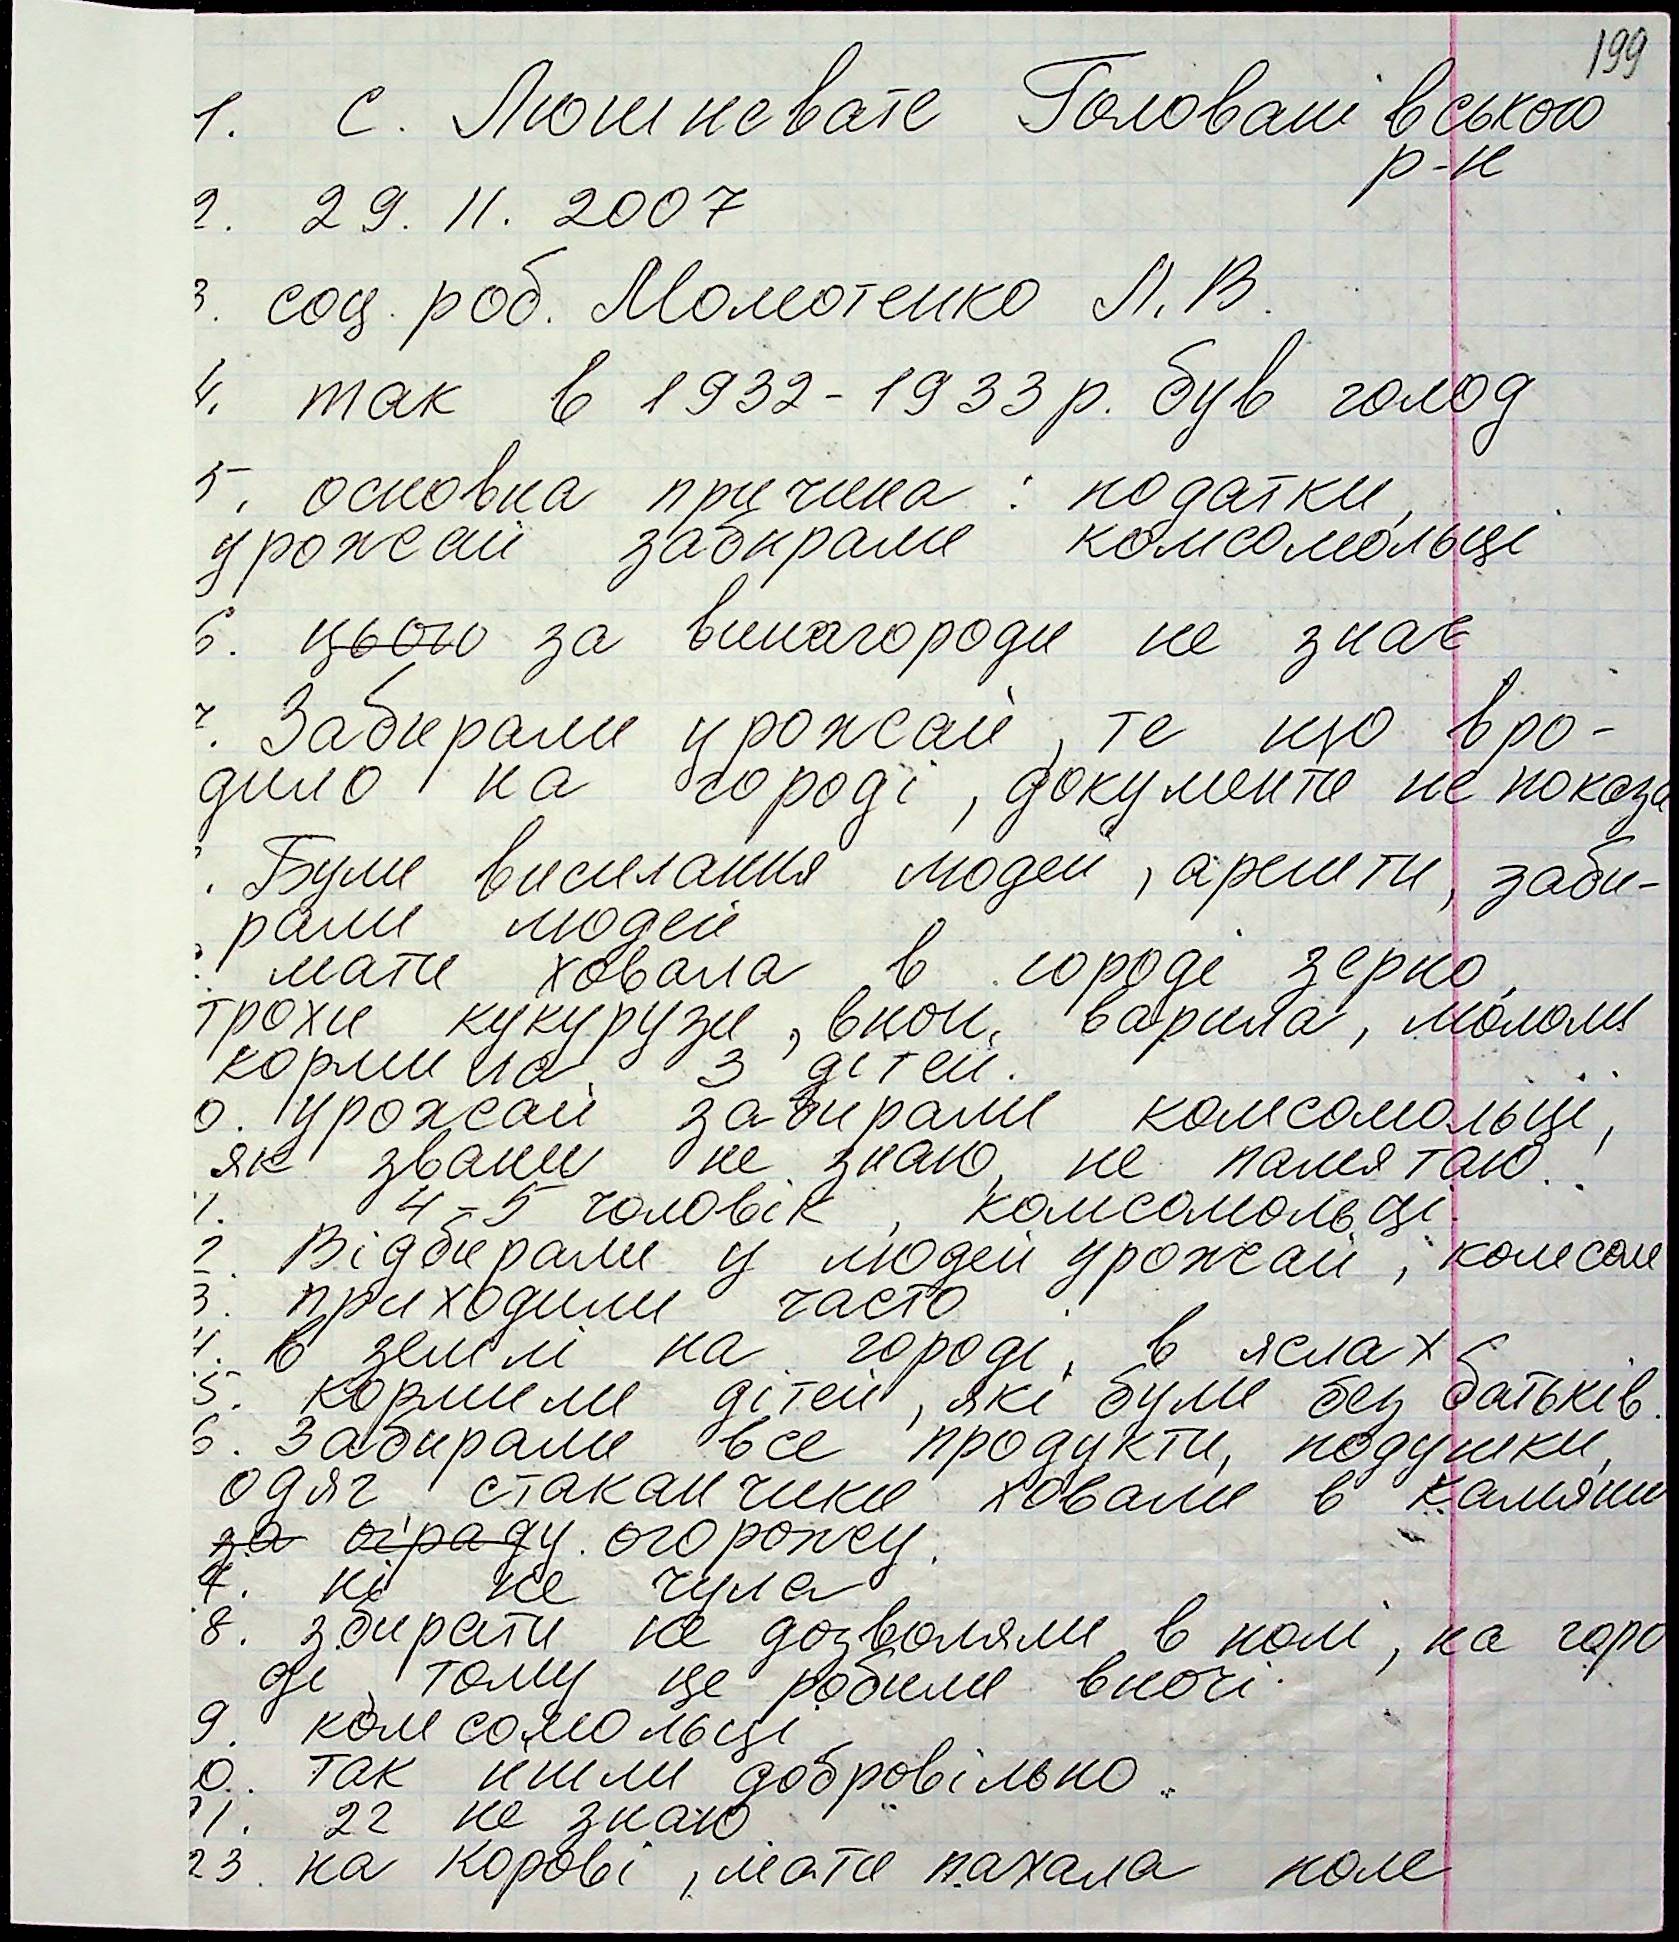 199
1. с. Люшневате Голованівського
р-н
2. 29. 11. 2007
3. соц. роб. Момотенко Л. В.
4. так в 1932-1933 р. був голод
5. основна причина : податки,
урожай забирали комсомольці
6. цього за винагороди не знає
7. Забирали урожай, те що вро-
дило на городі, документи не показа
. Були висилання людей, арешти, заби-
рали людей
мати ховала в городі зерно,
трохи кукурузи, вноч. варила, молола
кормила 3 дітей.
0. урожай забирали комсомольці,
як звали не знаю, не памятаю.
1. 4-5 чоловік, комсомольці.
2. Відбирали у людей урожай, комсом
3. приходили часто
4. в землі на городі, в яслах
5. кормили дітей, які були без батьків.
6. Забирали все продукти, подушки,
одяг стаканчики ховали в камяни
за ограду. огорожу.
7. ні не чула
8. збирати не дозволяли в полі, на горо
ді, тому це робили вночі.
9. комсомольці
0. так йшли добровільно.
21. 22 не знаю
23. на корові, мати пахала поле